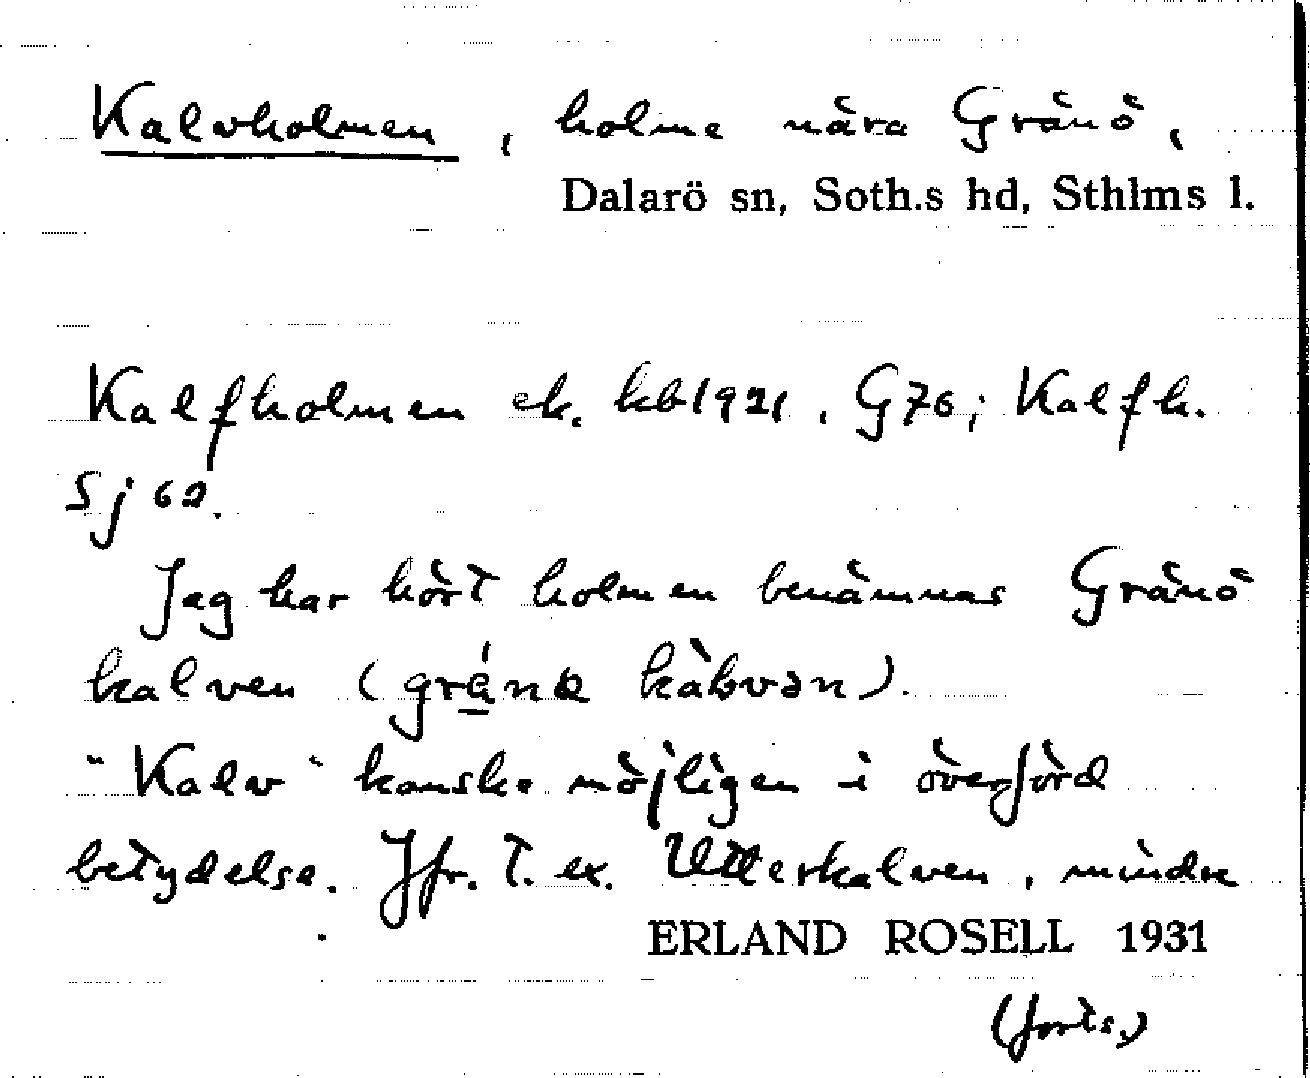 Kalvholmen, holme nära Gränö,
Dalarö sn, Soth.s hd, Sthlms l.
Kalfholmen ek. kb 1921. G76; Kalfh.
Sj 62.
Jag har hört holmen benämnas Gränö
kalven (
"Kalv" kanske möjligen i överförd
betydelse. Jfr. t. ex. Utterkalven, mindre
ERLAND ROSELL 1931
(forts.)